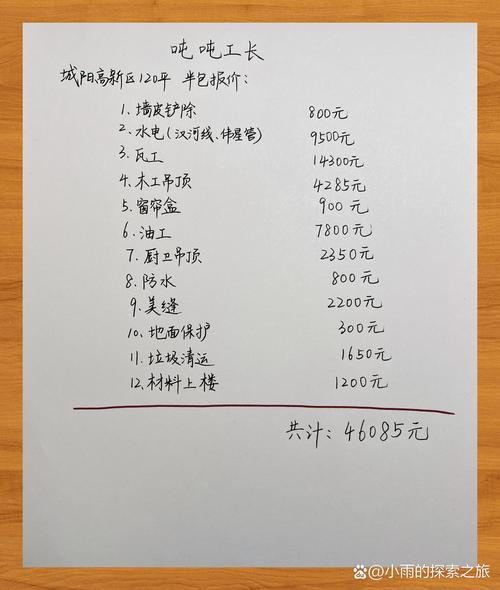 吨吨工长
城阳高新区120平 半包报价:
1、墙皮铲除 800元
2、水电(汉河线、伟星管) 9500元
3、瓦工 14300元
4、木工吊顶 4285元
5、窗帘盒 900元
6、油工 7800元
7、厨卫吊顶 2350元
8、防水 800元
9、美缝 2200元
10、地面保护 300元
11、垃圾清运 1650元
12、材料上楼 1200元
共计: 46085元
@小雨的探索之旅